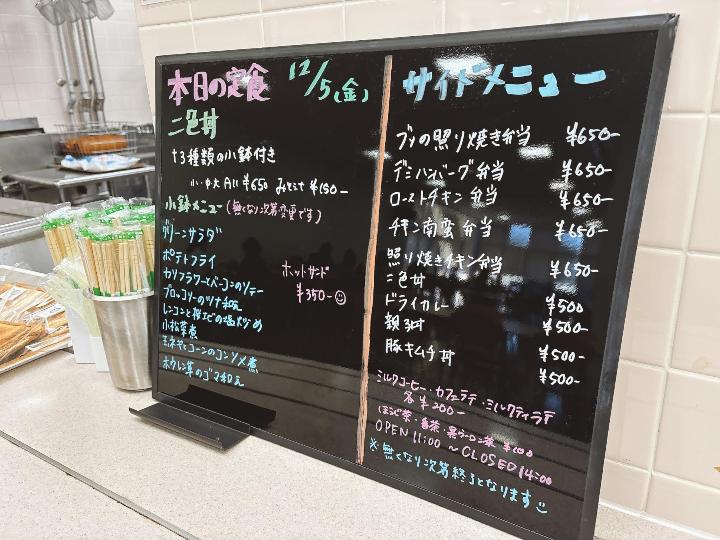 本日の定食 12/5(金)
二色丼
+3種類の小鉢付き
小・中・大 All ¥650 みそ汁 ¥150-
小鉢メニュー(無くなり次第変更です)
グリーンサラダ
ポテトフライ
カリフラワーとベーコンのソテー
ブロッコリーのツナ和え
レンコンと桜エビの塩炒め
小松菜煮
玉ネギとコーンのコンソメ煮
ホウレン草のゴマ和え
ホットサンド
¥350-
サイドメニュー
ブリの照り焼き弁当 ¥650-
デミハンバーグ弁当 ¥650-
ローストチキン弁当 ¥650-
チキン南蛮弁当 ¥650-
照り焼きチキン弁当 ¥650-
二色丼 ¥500
ドライカレー ¥500-
親子丼 ¥500-
豚キムチ丼 ¥500-
ミルクコーヒー・カフェラテ・ミルクティラテ
各¥200-
ほうじ茶・番茶・黒ウーロン茶 ¥100
OPEN 11:00 ~ CLOSED 14:00
※無くなり次第終了となります